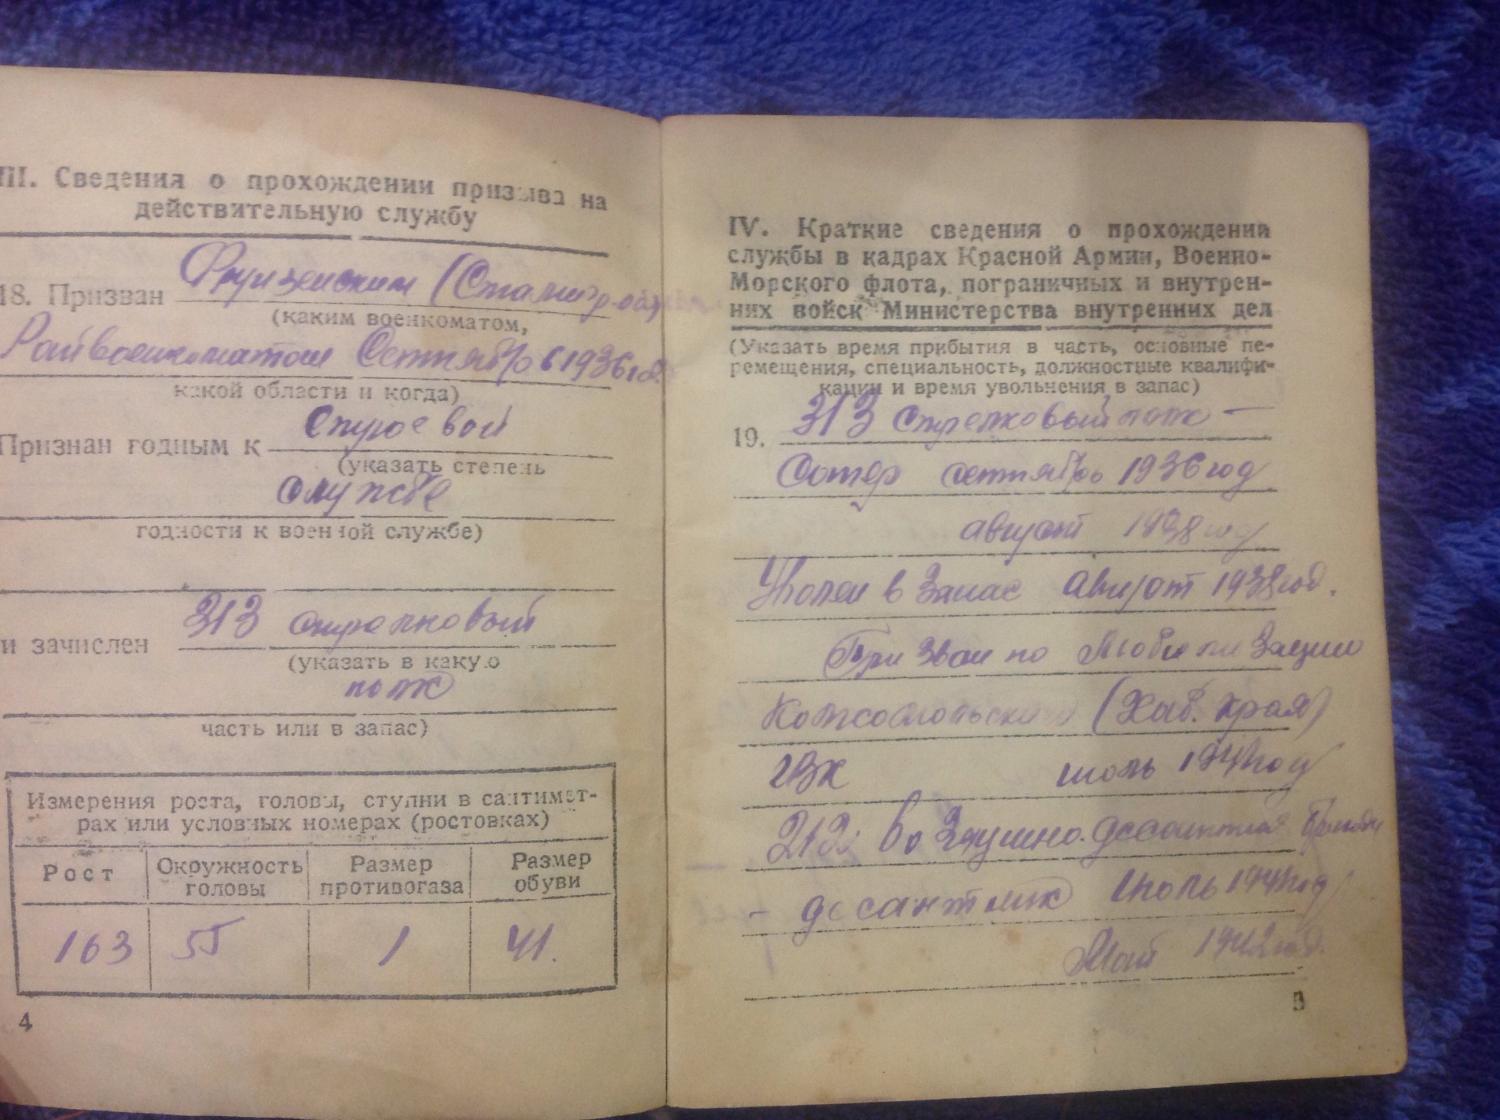 III. Сведения о прохождении призыва на
действительную службу
18. Призван Фрунзенским (Сталингр.обл)
(каким военкоматом,
Райвоенкоматом Сентябрь 1936 г.
какой области и когда)
Признан годным к строевой
(указать степень
службе
годности к военной службе)
и зачислен 313 стрелковый
(указать в какую
полк
часть или в запас)
Измерения роста, головы, ступни в сантимет-
рах или условных номерах (ростовках)
Рост Окружность головы Размер противогаза Размер обуви
163 55 1 41.
4
IV. Краткие сведения о прохождении
службы в кадрах Красной Армии, Военно-
Морского флота, пограничных и внутрен-
них войск Министерства внутренних дел
(Указать время прибытия в часть, основные пе-
ремещения, специальность, должностные квалифи-
кации и время увольнения в запас)
19. 313 стрелковый полк —
сентябрь 1936 год
август 1938 год
Уволен в запас август 1938 год.
Призван по мобилизации
Комсомольским (Хаб. края)
ГВК июль 1941 год
212 воздушно-десантная бригада
- десантник июль 1941 год
Май 1942 год.
5